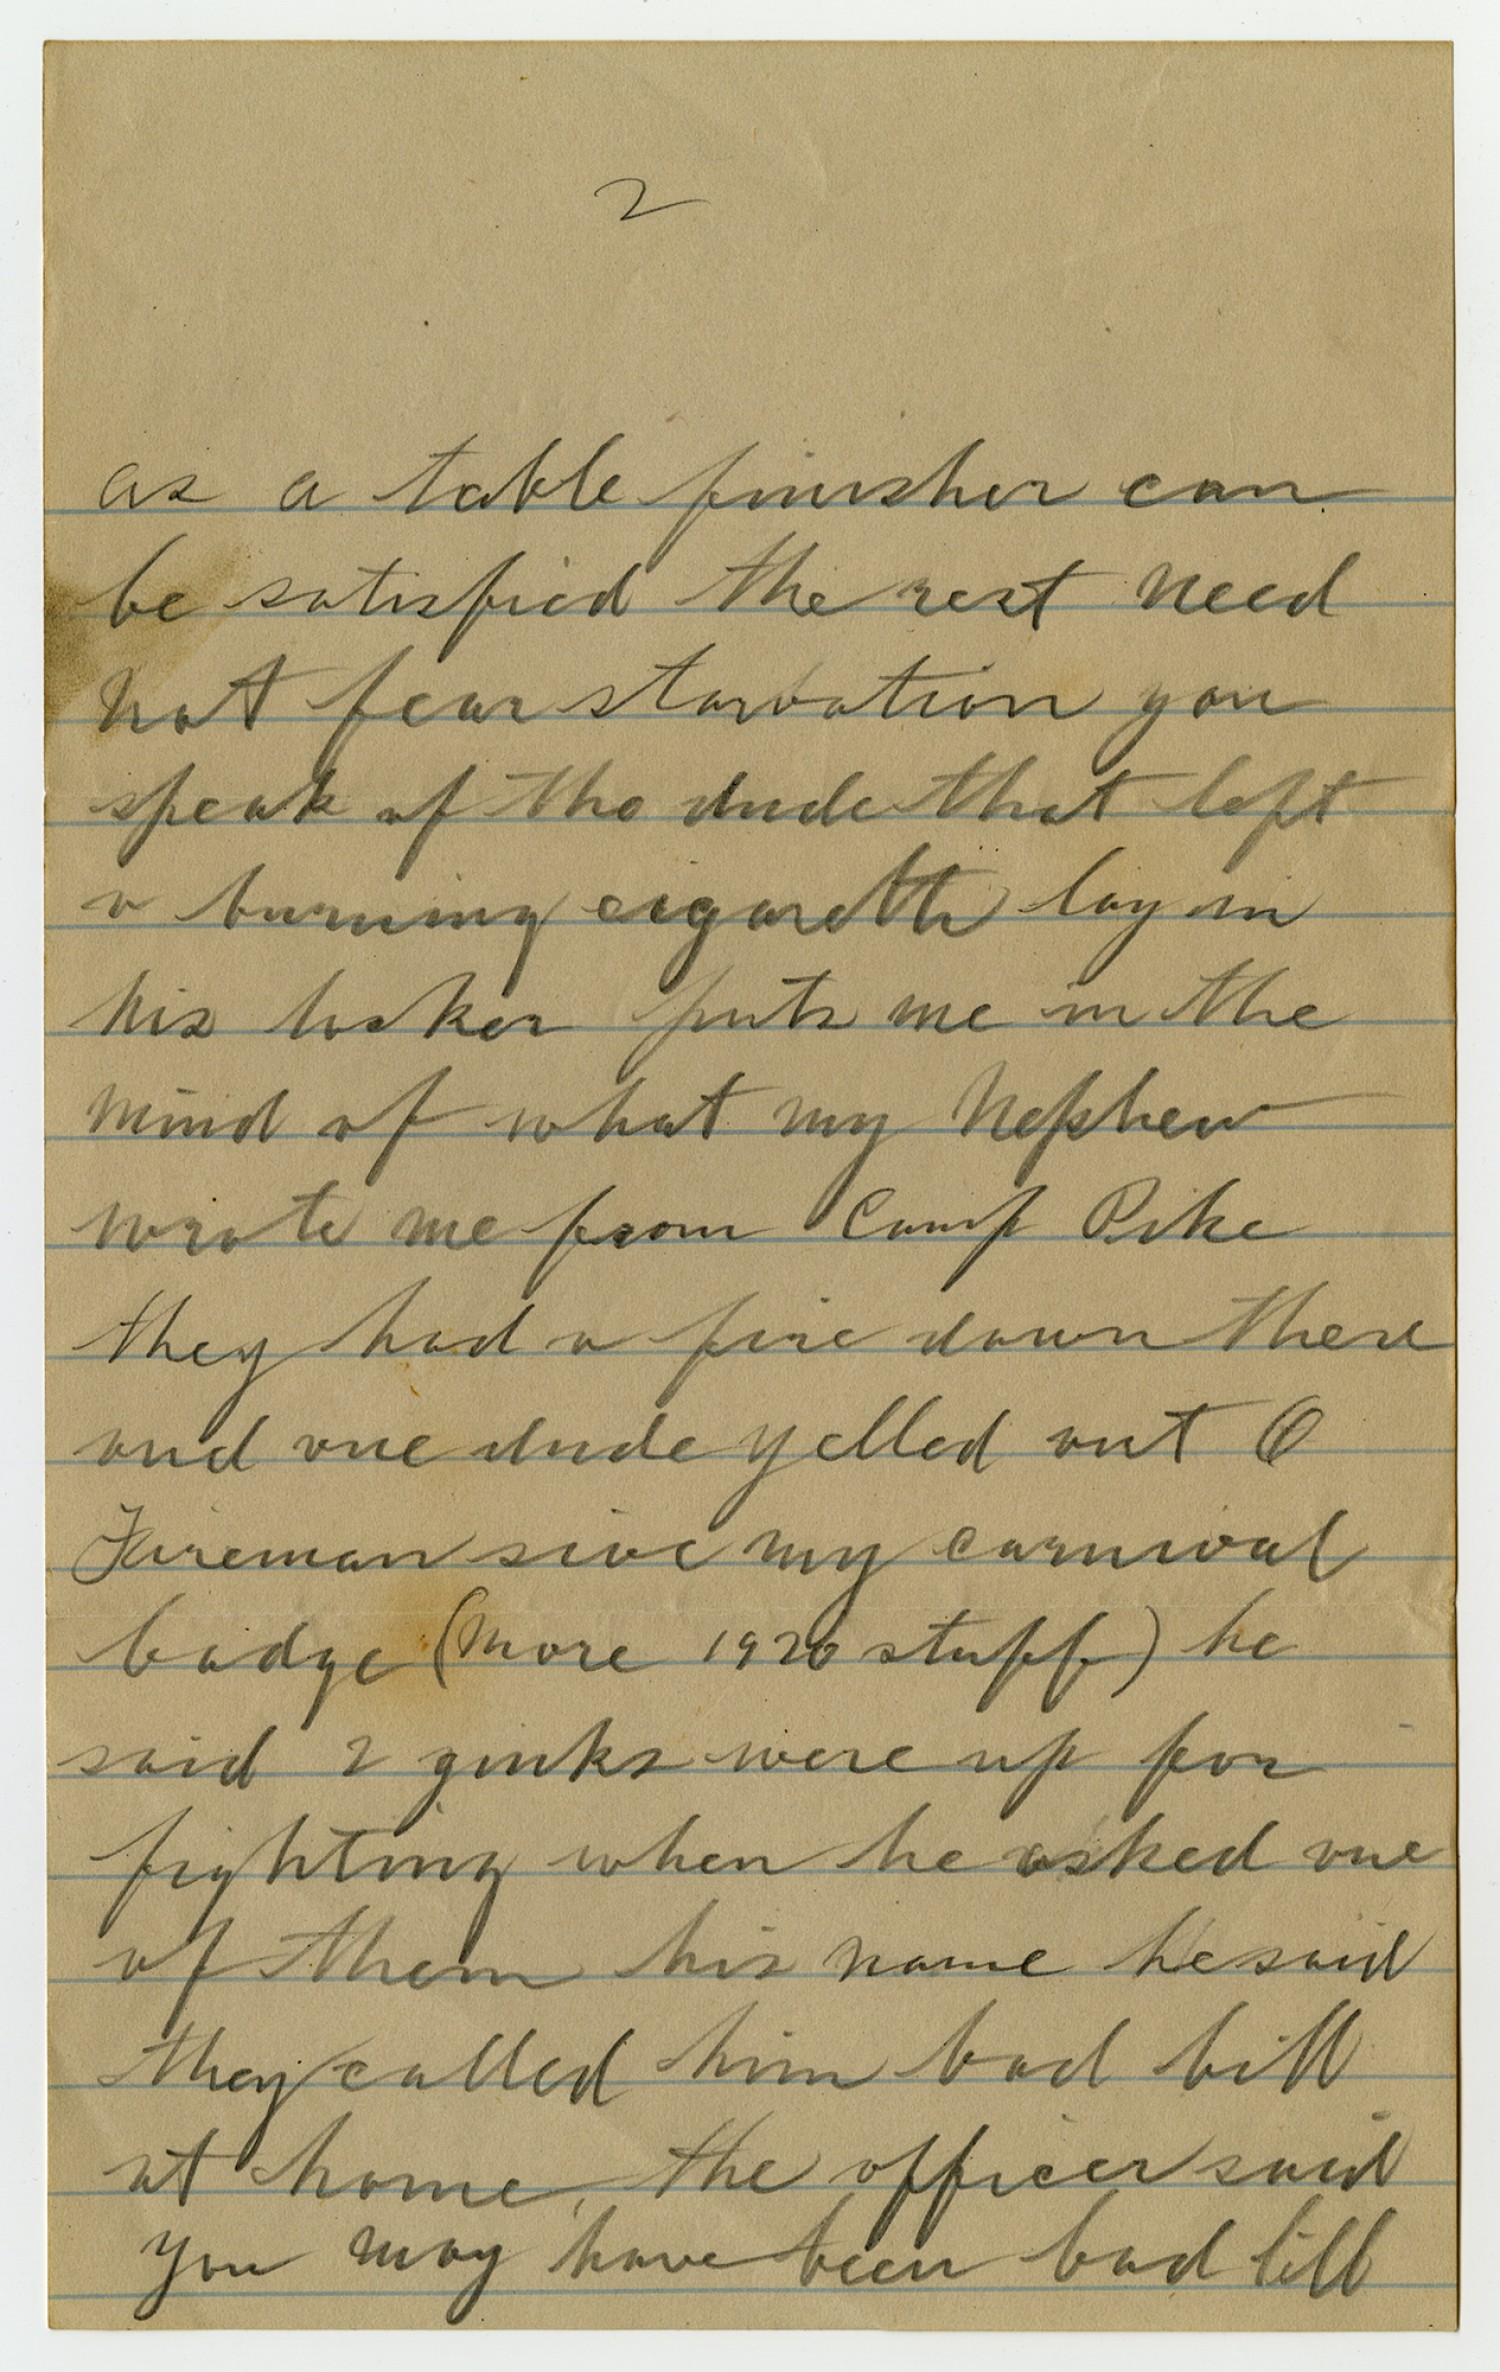 2
as a table finisher can
be satisfied the rest need
not fear starvation you
speak of the dude that left
a burning cigarette lay in
his locker puts me in the
mind of what my Nephew
wrote me from Camp Pike
they had a fire down there
and one dude yelled out O
Fireman sive my carnival
badge (more 1920 stuff) he
said 2 ginks were up for
fighting when he asked one
of them his name he said
they called him bad bill
at home, the officer said
you may have been bad bill